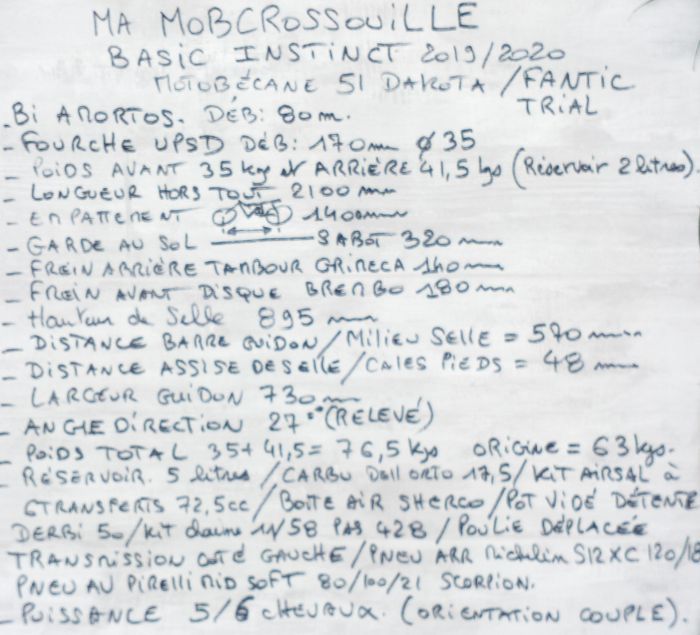 MA MOBCROSSOUILLE
BASIC INSTINCT 2019/2020
MOTOBÉCANE 51 DAKOTA / FANTIC
TRIAL
- Bi AMORTOS. DÉB: 80 m.
- FOURCHE UPSD DÉB: 170mm Ø 35
- POIDS AVANT 35 kgs et ARRIÈRE 41,5 kgs (Réservoir 2 litres).
- LONGUEUR HORS TOUT 2100 mm
- EMPATTEMENT 1400mm
- GARDE AU SOL SABOT 320 mm
- FREIN ARRIÈRE TAMBOUR GRIMECA 140mm
- FREIN AVANT DISQUE BREMBO 180mm
- Hauteur de Selle 895 mm
- DISTANCE BARRE GUIDON / MILIEU SELLE = 570 mm
- DISTANCE ASSISE DE SELLE / CALES PIEDS = 48 mm
- LARGEUR GUIDON 730 m
- ANGLE DIRECTION 27° (RELEVÉ)
- POIDS TOTAL 35+41,5= 76,5 kgs ORIGINE = 63 kgs.
- RÉSERVOIR. 5 litres / CARBU Dell orto 17,5 / KIT AIRSAL à
6TRANSFERTS 72,5cc / BOITE AIR SHERCO / POT VIDÉ DÉTENTE
DERBI 50 / Kit chaine 11/58 PAS 428 / POULIE DÉPLACÉE
TRANSMISSION COTÉ GAUCHE / PNEU ARR Michelin S12 XC 120/18
PNEU AV PIRELLI MID SOFT 80/100/21 SCORPION.
- PUISSANCE 5/6 CHEVAUX. (ORIENTATION COUPLE).